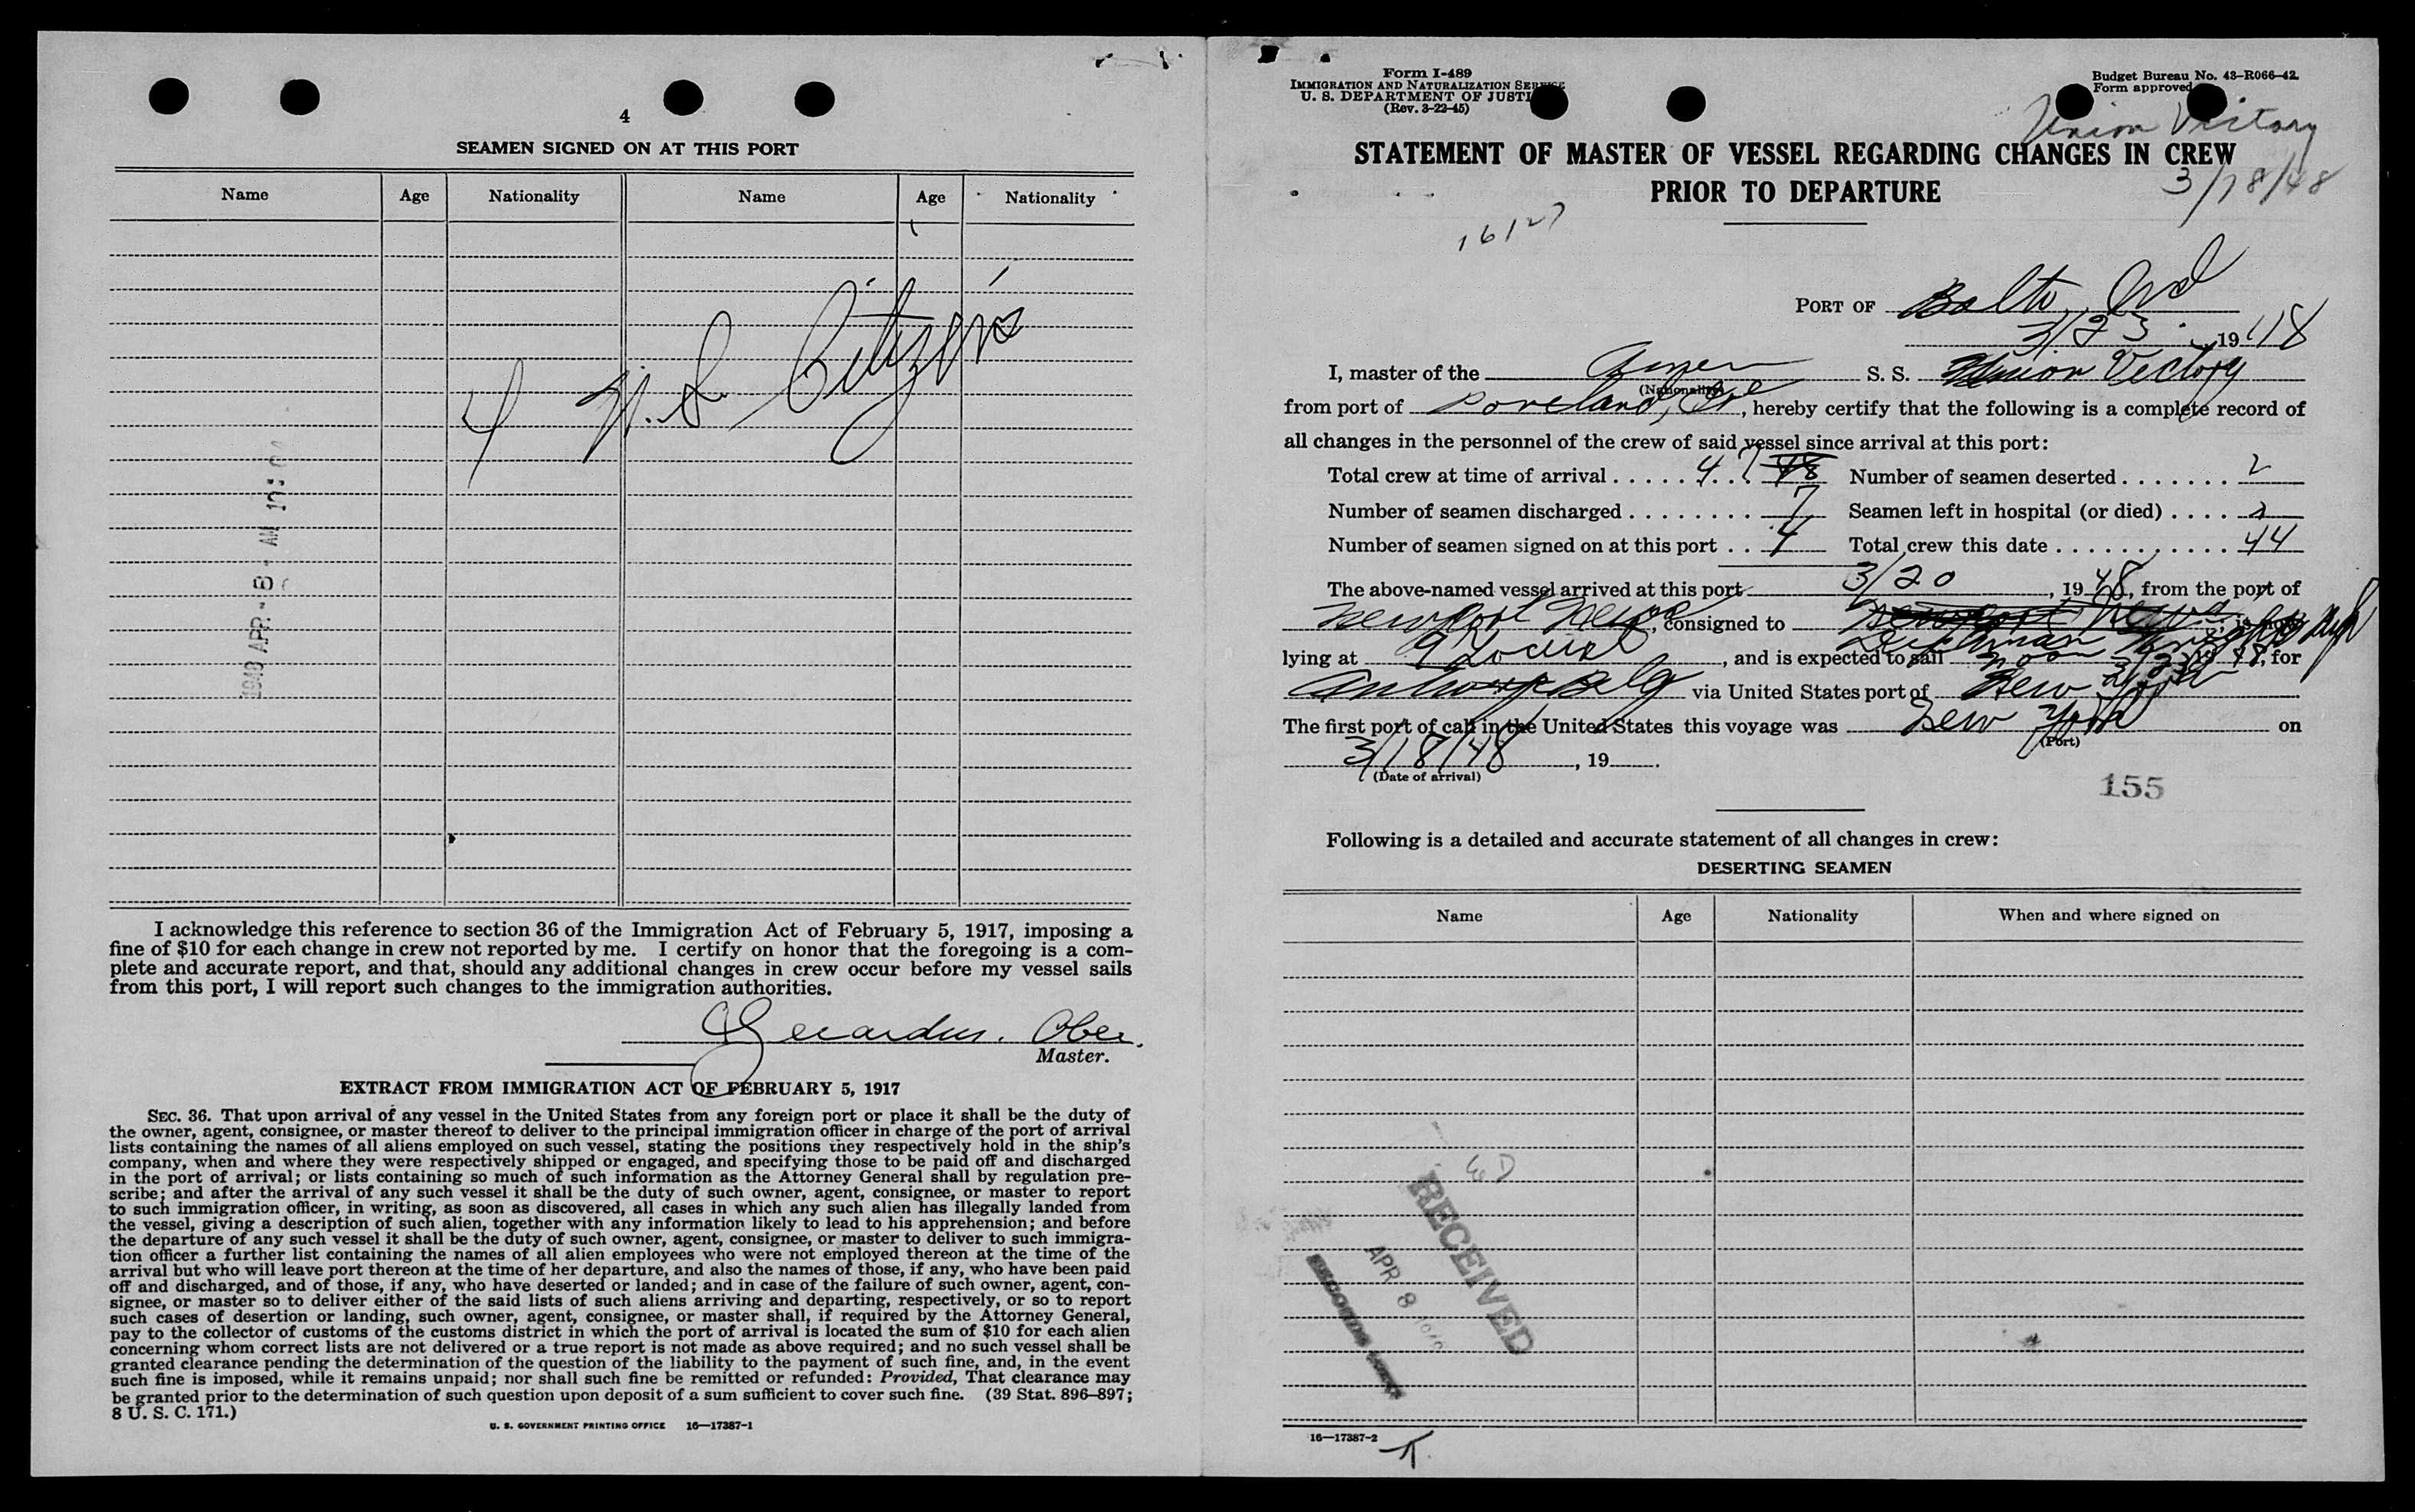 4
SEAMEN SIGNED ON AT THIS PORT
Name Age Nationality Name Age Nationality
4 U.S. Citizens
1948 APR-8 AM
I acknowledge this reference to section 36 of the Immigration Act of February 5, 1917, imposing a
fine of $10 for each change in crew not reported by me. I certify on honor that the foregoing is a com-
plete and accurate report, and that, should any additional changes in crew occur before my vessel sails
from this port, I will report such changes to the immigration authorities.
Gerardus. Ober.
Master.
EXTRACT FROM IMMIGRATION ACT OF FEBRUARY 5, 1917
SEC. 36. That upon arrival of any vessel in the United States from any foreign port or place it shall be the duty of
the owner, agent, consignee, or master thereof to deliver to the principal immigration officer in charge of the port of arrival
lists containing the names of all aliens employed on such vessel, stating the positions they respectively hold in the ship's
company, when and where they were respectively shipped or engaged, and specifying those to be paid off and discharged
in the port of arrival; or lists containing so much of such information as the Attorney General shall by regulation pre-
scribe; and after the arrival of any such vessel it shall be the duty of such owner, agent, consignee, or master to report
to such immigration officer, in writing, as soon as discovered, all cases in which any such alien has illegally landed from
the vessel, giving a description of such alien, together with any information likely to lead to his apprehension; and before
the departure of any such vessel it shall be the duty of such owner, agent, consignee, or master to deliver to such immigra-
tion officer a further list containing the names of all alien employees who were not employed thereon at the time of the
arrival but who will leave port thereon at the time of her departure, and also the names of those, if any, who have been paid
off and discharged, and of those, if any, who have deserted or landed; and in case of the failure of such owner, agent, con-
signee, or master so to deliver either of the said lists of such aliens arriving and departing, respectively, or so to report
such cases of desertion or landing, such owner, agent, consignee, or master shall, if required by the Attorney General,
pay to the collector of customs of the customs district in which the port of arrival is located the sum of $10 for each alien
concerning whom correct lists are not delivered or a true report is not made as above required; and no such vessel shall be
granted clearance pending the determination of the question of the liability to the payment of such fine, and, in the event
such fine is imposed, while it remains unpaid; nor shall such fine be remitted or refunded: Provided, That clearance may
be granted prior to the determination of such question upon deposit of a sum sufficient to cover such fine. (39 Stat. 896–897;
8 U. S. C. 171.)
U. S. GOVERNMENT PRINTING OFFICE 16—17387-1
Form I-489
IMMIGRATION AND NATURALIZATION SERVICE
U. S. DEPARTMENT OF JUSTI
(Rev. 3-22-45)
Budget Bureau No. 43-R066-42.
Form approved
Union Victory
3/18/48
STATEMENT OF MASTER OF VESSEL REGARDING CHANGES IN CREW
PRIOR TO DEPARTURE
16127
PORT OF Balto, Md
3/23, 1948
I, master of the Amer S. S. Union Victory
(Nationality)
from port of , hereby certify that the following is a complete record of
all changes in the personnel of the crew of said vessel since arrival at this port:
Total crew at time of arrival 47 48 Number of seamen deserted 2
Number of seamen discharged 7 Seamen left in hospital (or died)
Number of seamen signed on at this port 4 Total crew this date 44
The above-named vessel arrived at this port 3/20, 1948, from the port of
Newport News, consigned to Newport News, is now
lying at , and is expected to sail noon 3/23 1948, for
Antwerp Belg via United States port of New York
The first port of call in the United States this voyage was New York on
(Port)
3/18/48, 19 .
(Date of arrival)
155
Following is a detailed and accurate statement of all changes in crew:
DESERTING SEAMEN
Name Age Nationality When and where signed on
RECEIVED
APR 8
RECORDS
16—17387-2